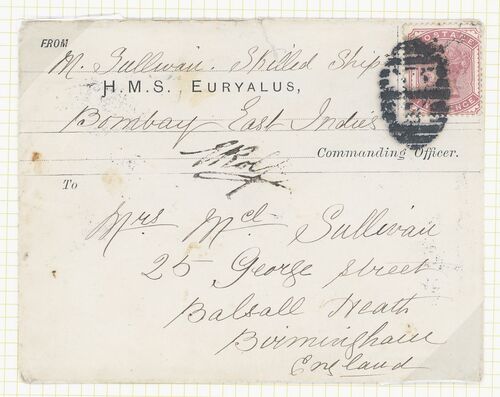 FROM
M. Sullivan. Skilled Ship
H.M.S. EURYALUS,
Bombay East Indies
Commanding Officer.
To
Mrs Mcl Sullivan
25 George Street
Balsall Heath
Birmingham
England
POSTAGE